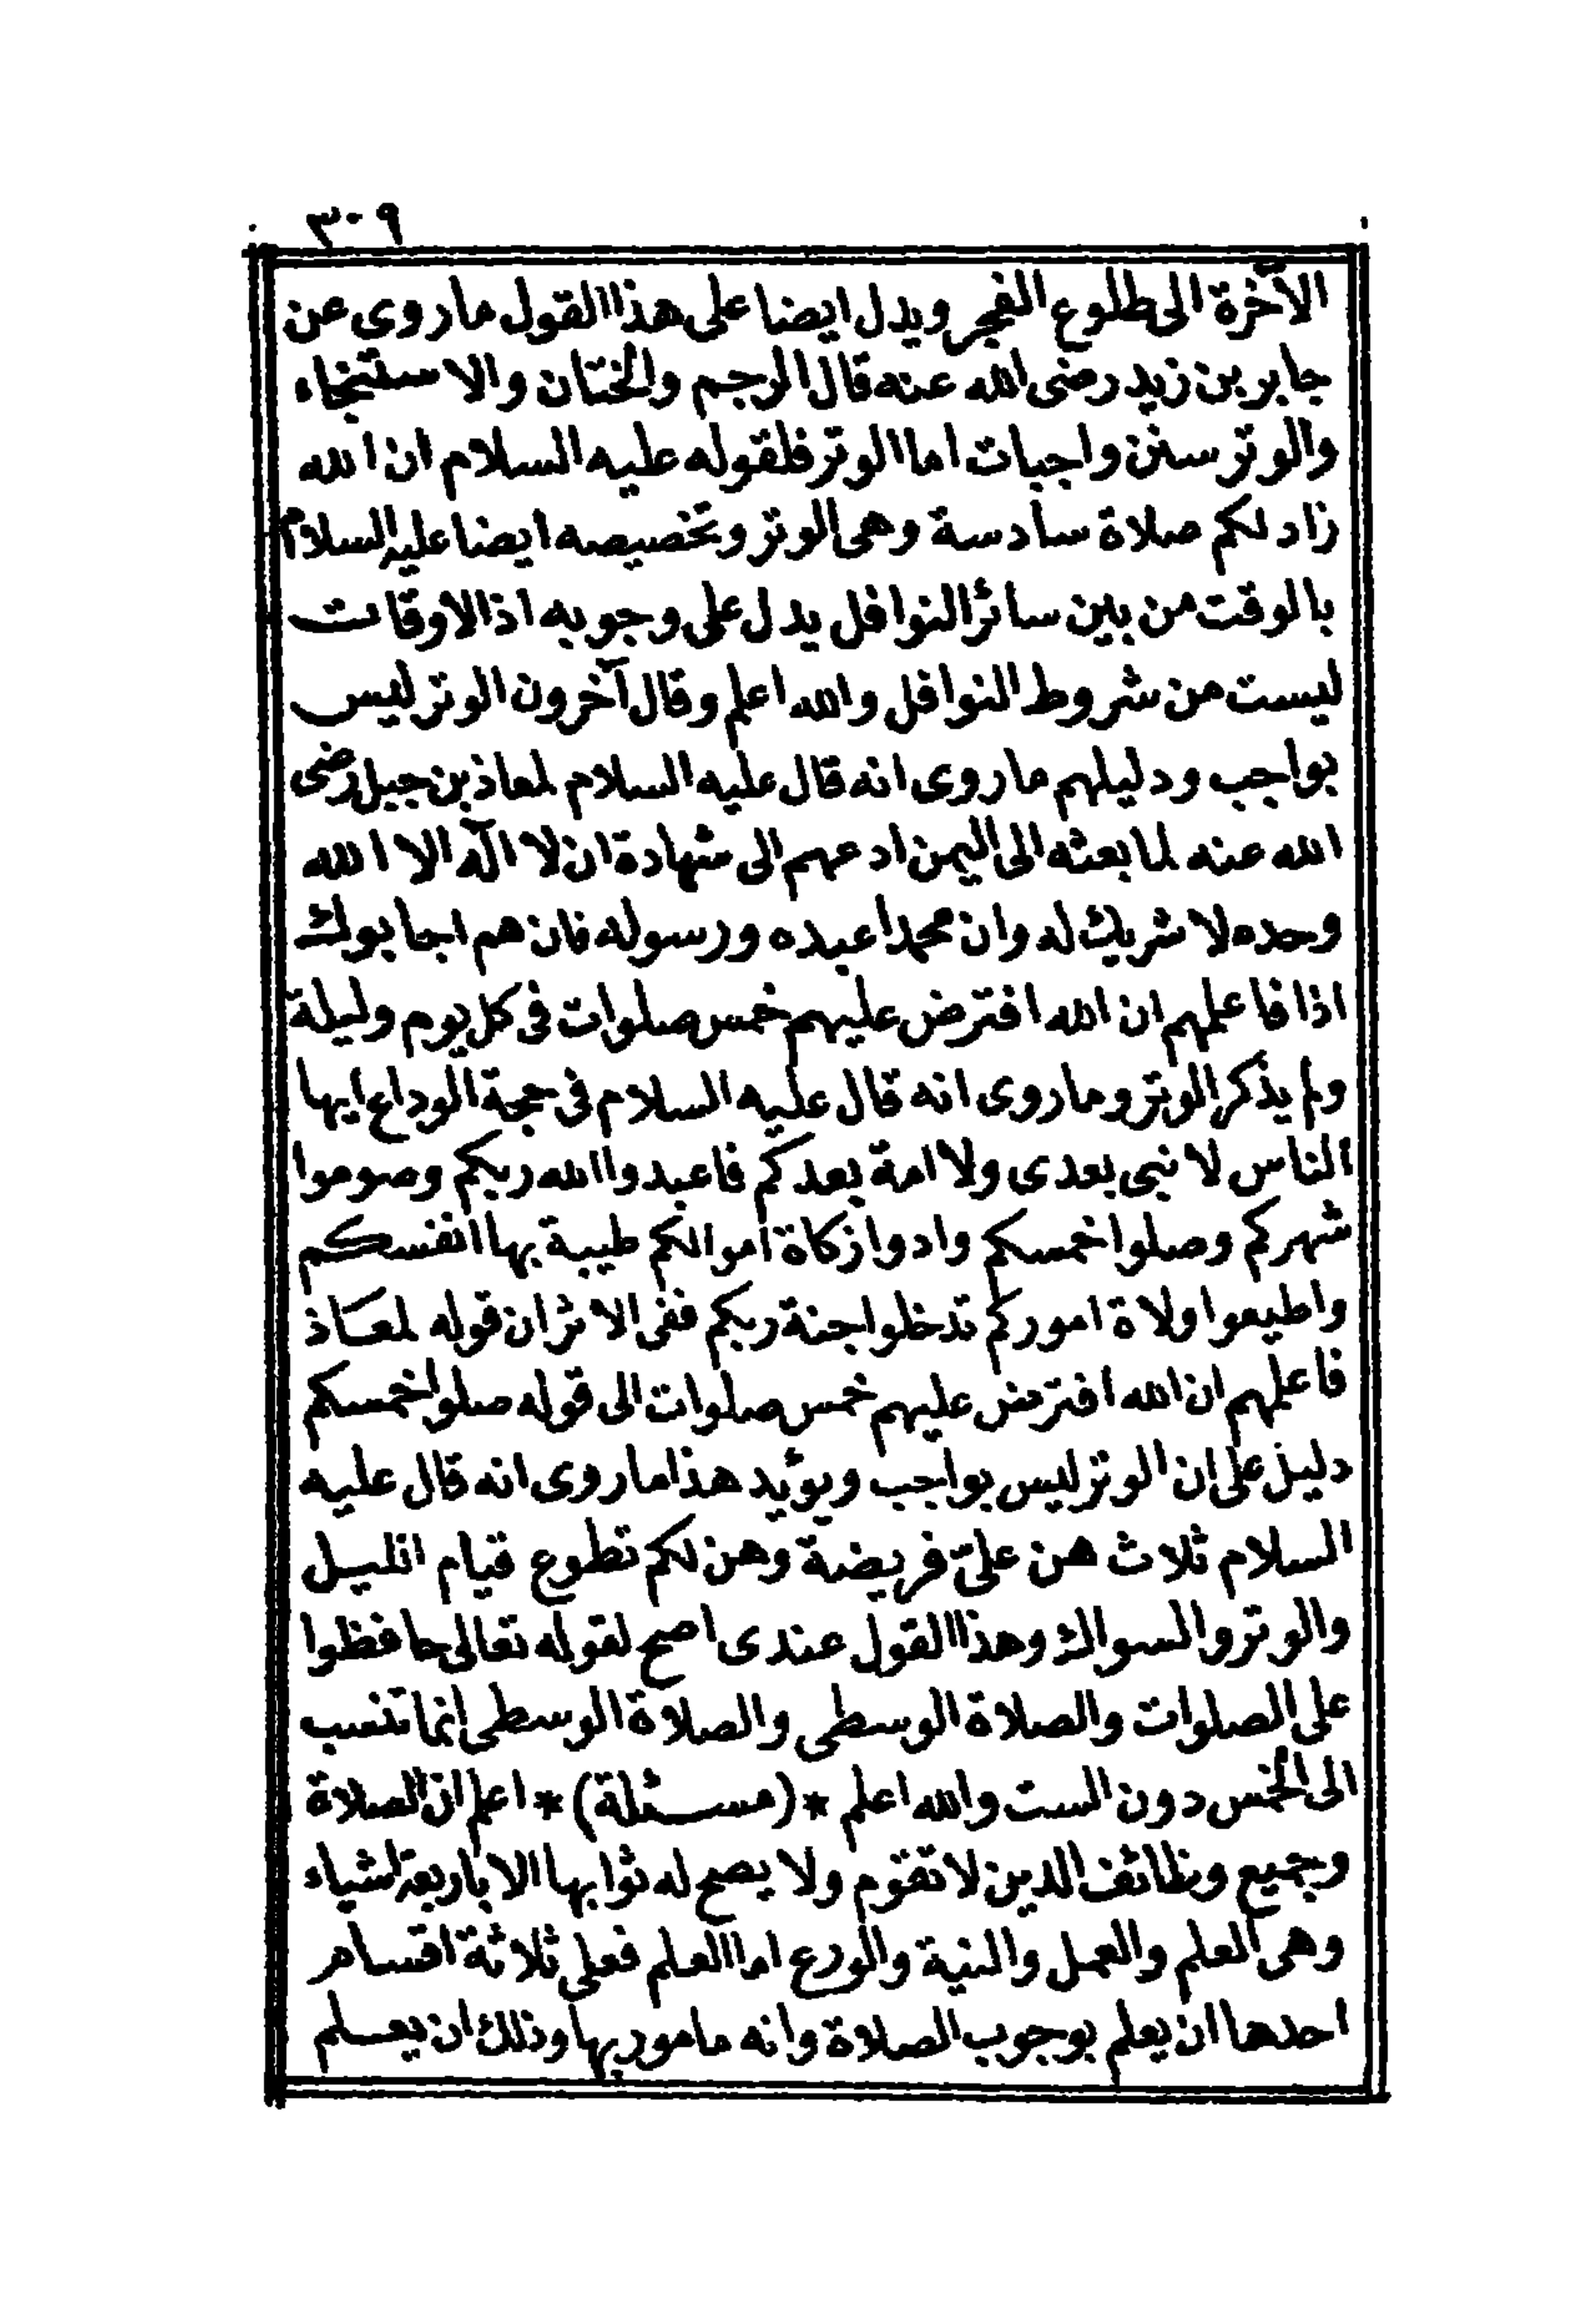 ٣٠٩
الآخرة الى طلوع الفجر ويدل ايضا على هذا القول ماروى عن
جابر بن زيد رضى الله عنه قال الرجم والختان والاستنجاء
والوتر سنن واجبات اما الوتر فلقوله عليه السلام ان الله
زاد لكم صلاة سادسة وهى الوتر وتخصيصه ايضا عليه السلام
بالوقت من بين سائر النوافل يدل على وجوبه اذ الاوقات
ليست من شروط النوافل والله اعلم وقال آخرون الوتر ليس
بواجب ودليلهم ماروى انه قال عليه السلام لمعاذ بن جبل رضى
الله عنه لما بعثه الى اليمن ادعهم الى شهادة ان لا اله الا الله
وحده لا شريك له وان محمدا عبده ورسوله فان هم اجابوك
اذا فاعلمهم ان الله افترض عليهم خمس صلوات فى كل يوم وليلة
ولم يذكر الوتر وماروى انه قال عليه السلام فى حجة الوداع ايها
الناس لا نبى بعدى ولا امة بعدكم فاعبدوا الله ربكم وصوموا
شهركم وصلوا خمسكم وادوا زكاة اموالكم طيبة بها انفسكم
واطيعوا ولاة اموركم تدخلوا جنة ربكم ففى الاثر ان قوله لمعاذ
فاعلمهم ان الله افترض عليهم خمس صلوات الى قوله صلوا خمسكم
دليل على ان الوتر ليس بواجب ويؤيد هذا ماروى انه قال عليه
السلام ثلاث هن علىّ فريضة وهن لكم تطوع قيام الليل
والوتر والسواك وهذا القول عندى اصح لقوله تعالى حافظوا
على الصلوات والصلاة الوسطى والصلاة الوسطى انما تنسب
الى الخمس دون الست والله اعلم *(مسئلة)* اعلم ان الصلاة
وجميع وظائف الدين لا تقوم ولا يصح له ثوابها الا باربعة اشياء
وهى العلم والعمل والنية والورع اما العلم فعلى ثلاثة اقسام
احدها ان يعلم بوجوب الصلاة وانه مامور بها وذلك ان يعلم